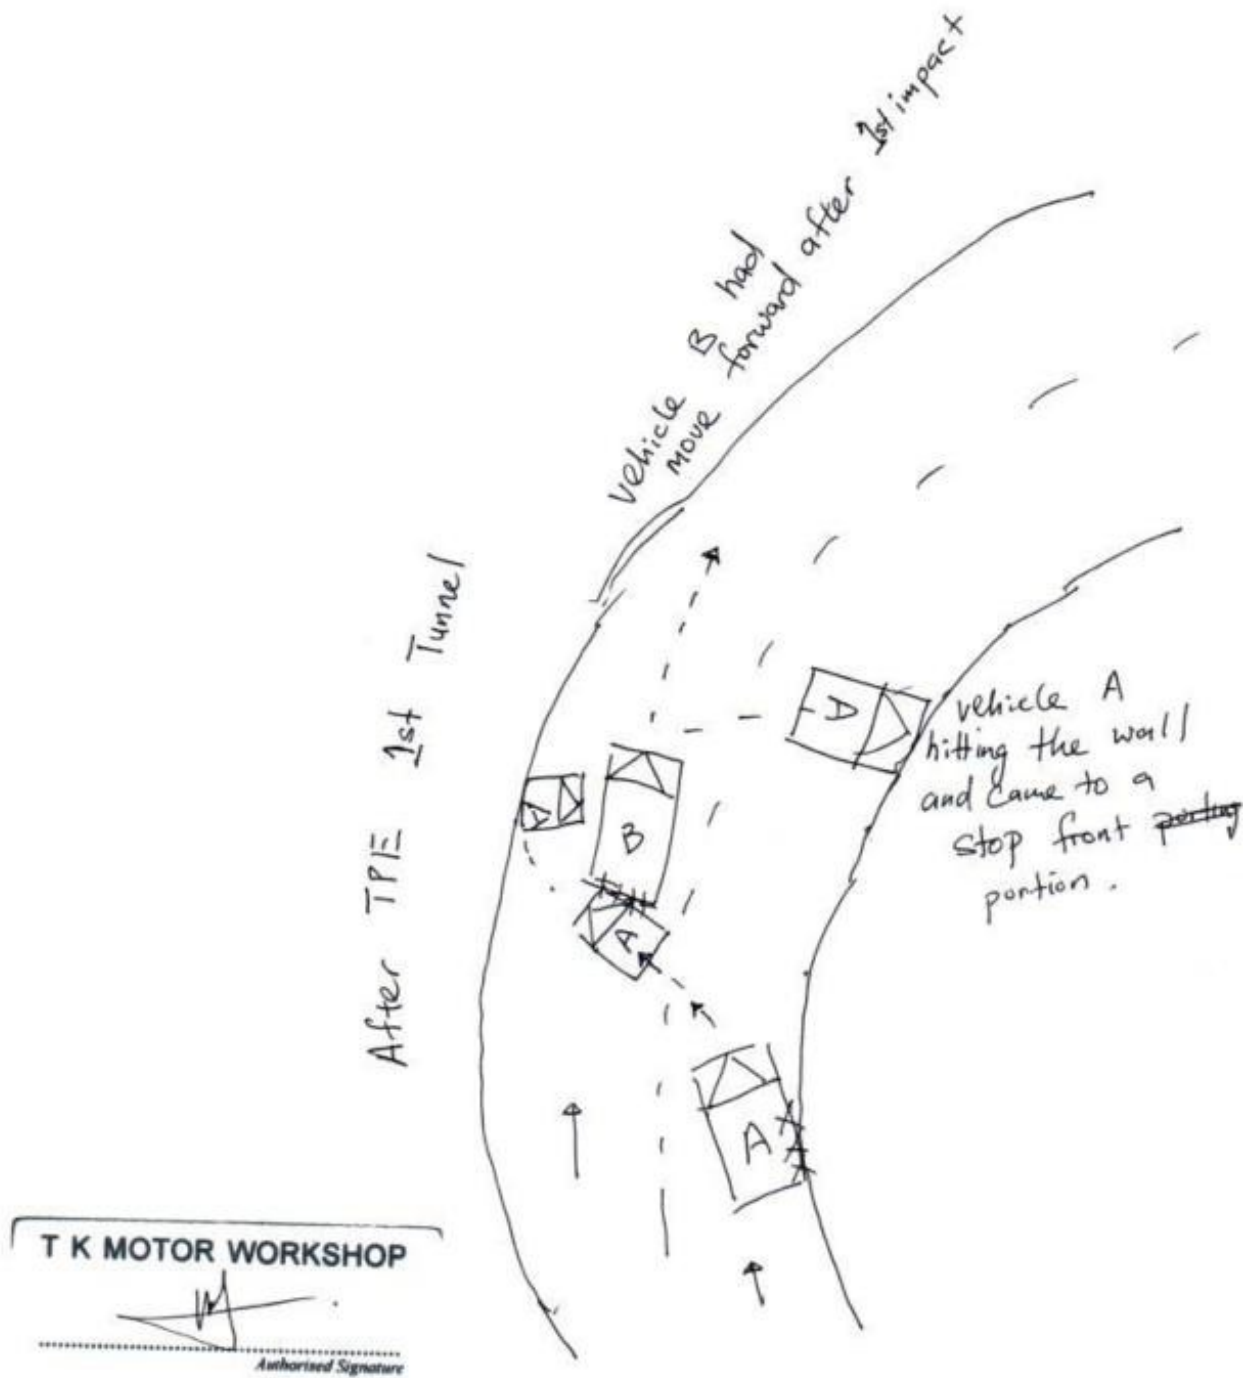 vehicle B had
move forward after 1st impact
After TPE 1st Tunnel
A
A
B
A
A
vehicle A
hitting the wall
and came to a
stop front
portion.
T K MOTOR WORKSHOP
Authorised Signature